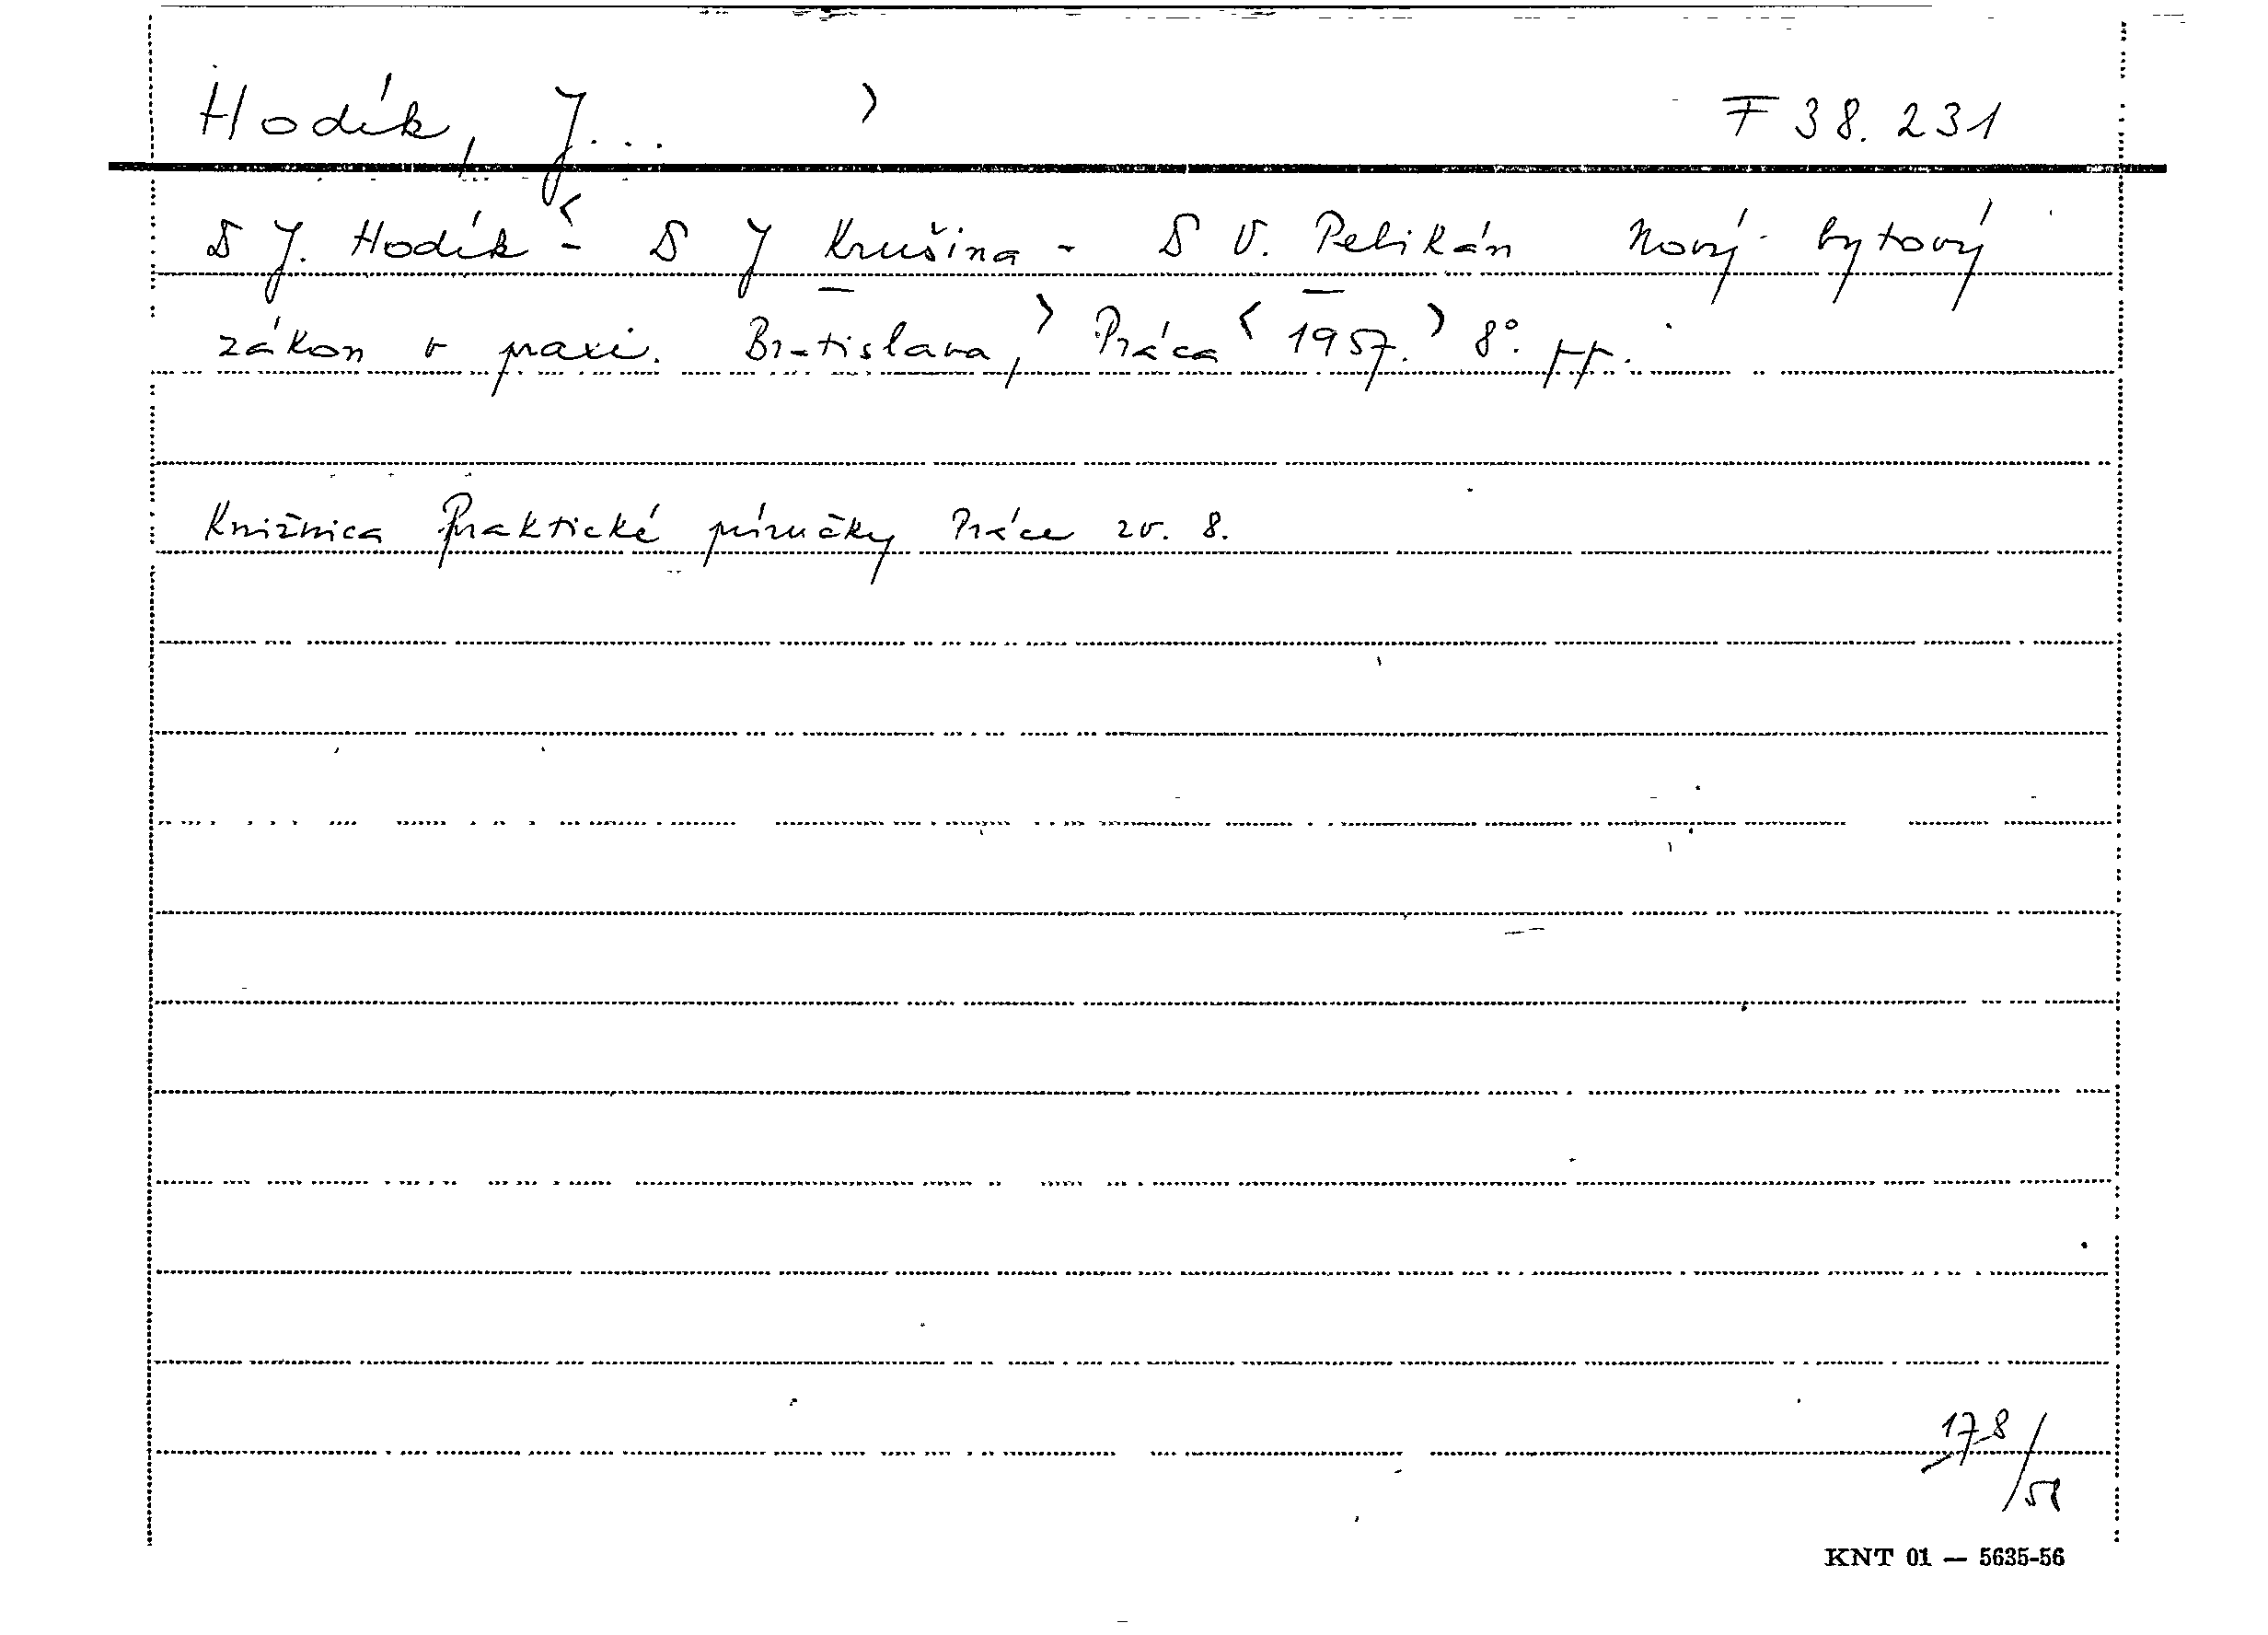 Hodík, J... ) F 38.231
D J. Hodík - D J Krušina - D V. Pelikán Nový bytový
zákon v praxi. Bratislava, Práca 1957. 8°.
Knižnica Praktické príručky Práce zv. 8.
178/58
KNT 01 — 5635-56